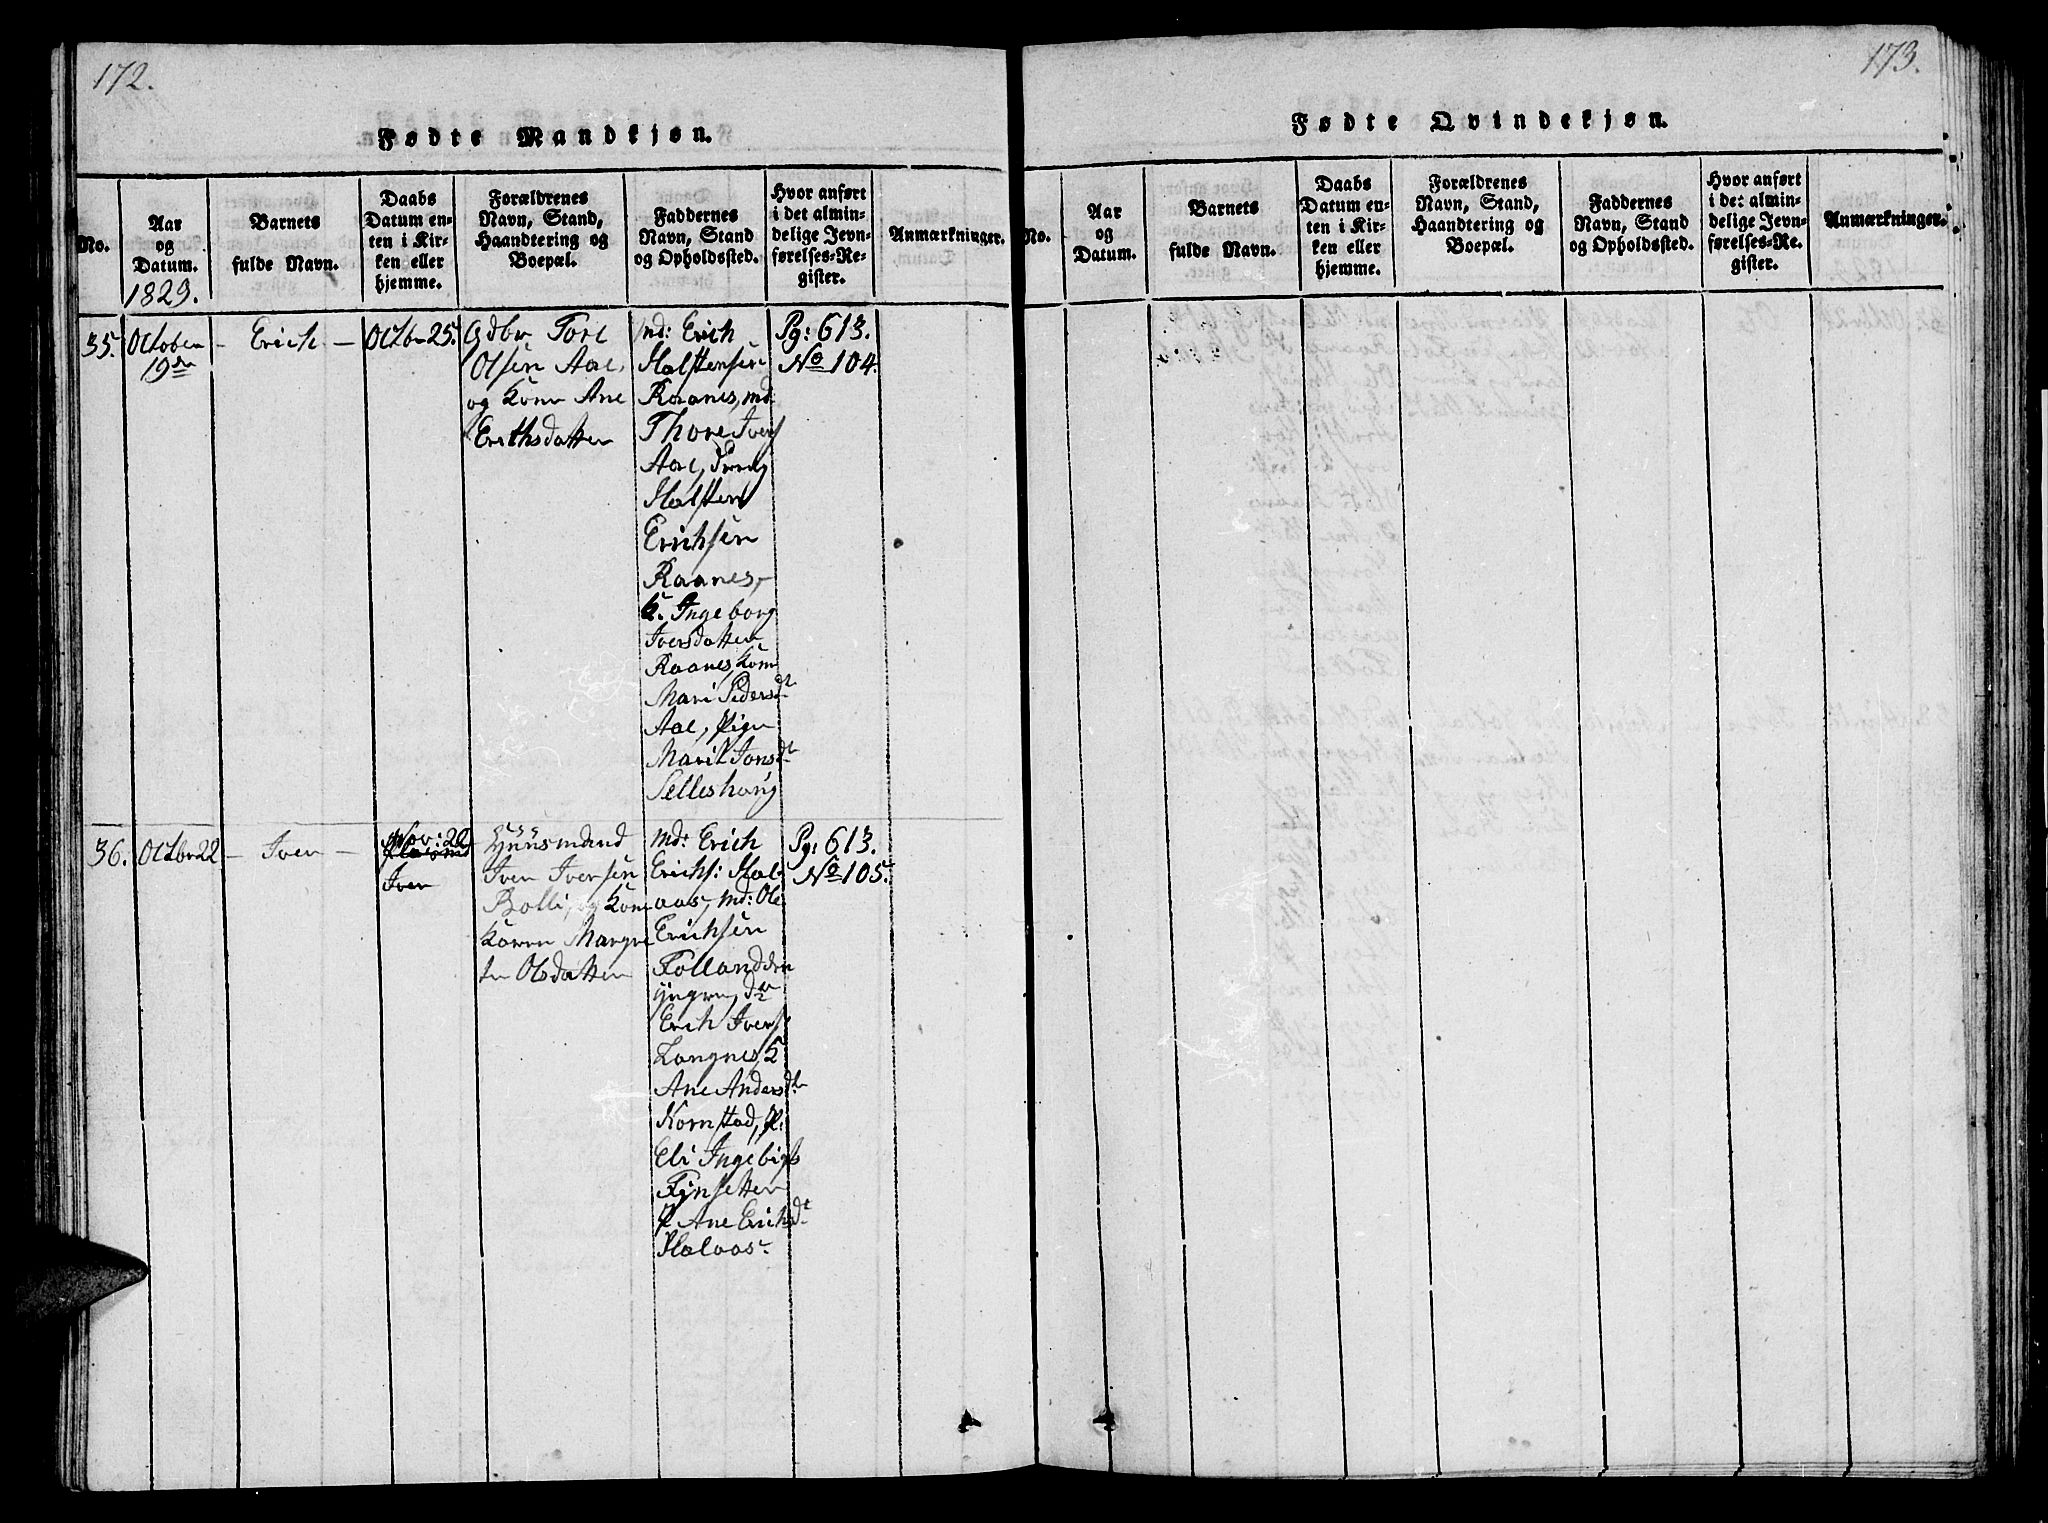 172.
Fødte Mandkjøn.
No.
Aar
og
Datum.
1829.
Barnets
fulde Navn.
Daabs
Datum en-
ten i Kir-
ken eller
hjemme.
Forældrenes
Navn, Stand,
Haandtering og
Boepæl.
Faddernes
Navn, Stand
og Opholdssted.
Hvor anført
i det almin-
delige Jevn-
førelses-Re-
gister.
Anmærkninger.
35.
October
19de
- Erich -
Octbr 25.
Gdbr Tore
Olsen Aae,
og Kone Ane
Erichsdatter
md: Erich
Halstensen
Raanes, md:
Thore Ivers
Aae, Dreng
Halsten
Erichsen
Raanes,
K. Ingeborg
Iversdatter
Raanes, Kone
Mari Pedersdt
Aae, Pige
Marit Jonsdt
Selleshoug
Pg: 613.
No 104.
36.
Octbr 22
- Iver -
Nov: 22
Iver
Huusmand
Iver Iversen
Bolli, og Kone
Karen Margre
te Olsdatter
md: Erich
Erichs: Hal
aas, md: Ole
Erichsen
Follandden
yngre, dr
Erich Ivers
Langnes, K
Ane Andersdt
Nornstad, P:
Eli Ingebigts
Fynsetter
P Ane Erichsdt
Halaas
Pg: 613.
No 105.
173.
Fødte Qvindekjøn.
No.
Aar
og
Datum.
Barnets
fulde Navn.
Daabs
Datum en-
ten i Kir-
ken eller
hjemme.
Forældrenes
Navn, Stand,
Haandtering og
Boepæl.
Faddernes
Navn, Stand
og Opholdssted.
Hvor anført
i det almin-
delige Jevn-
førelses-Re-
gister.
Anmærkninger.